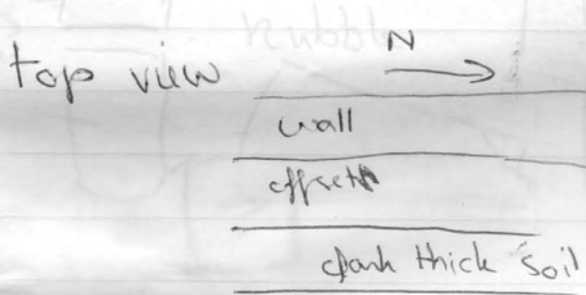 N
top view
wall
offset
dark thick soil